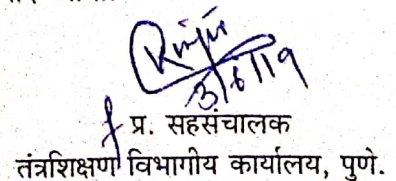 3/6/19
प्र. सहसंचालक
तंत्रशिक्षण विभागीय कार्यालय, पुणे.